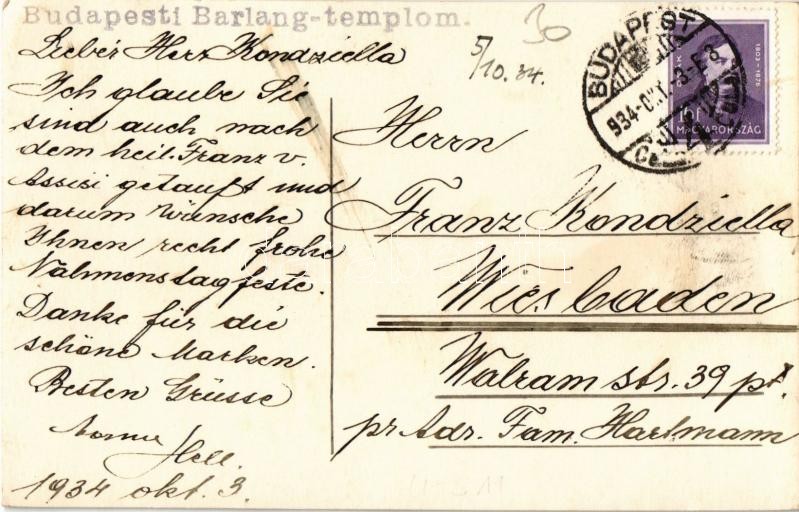 Budapesti Barlang-templom.
Lieber Herr Kondziella
Ich glaube Sie
sind auch nach
dem heil. Franz v.
Assisi getauft und
darum wünsche
Ihnen recht frohe
Nahmenstagfeste.
Danke für die
schöne Marken.
Besten Grüsse
Hell.
1934 okt. 3.
30
5/10.34.
BUDAPEST
934-OKT.-3-E 8
1803-1876
MAGYARORSZÁG
Herrn
Franz Kondziella
Wiesbaden
Walram str. 39 p
pr Adr. Fam. Hartmann